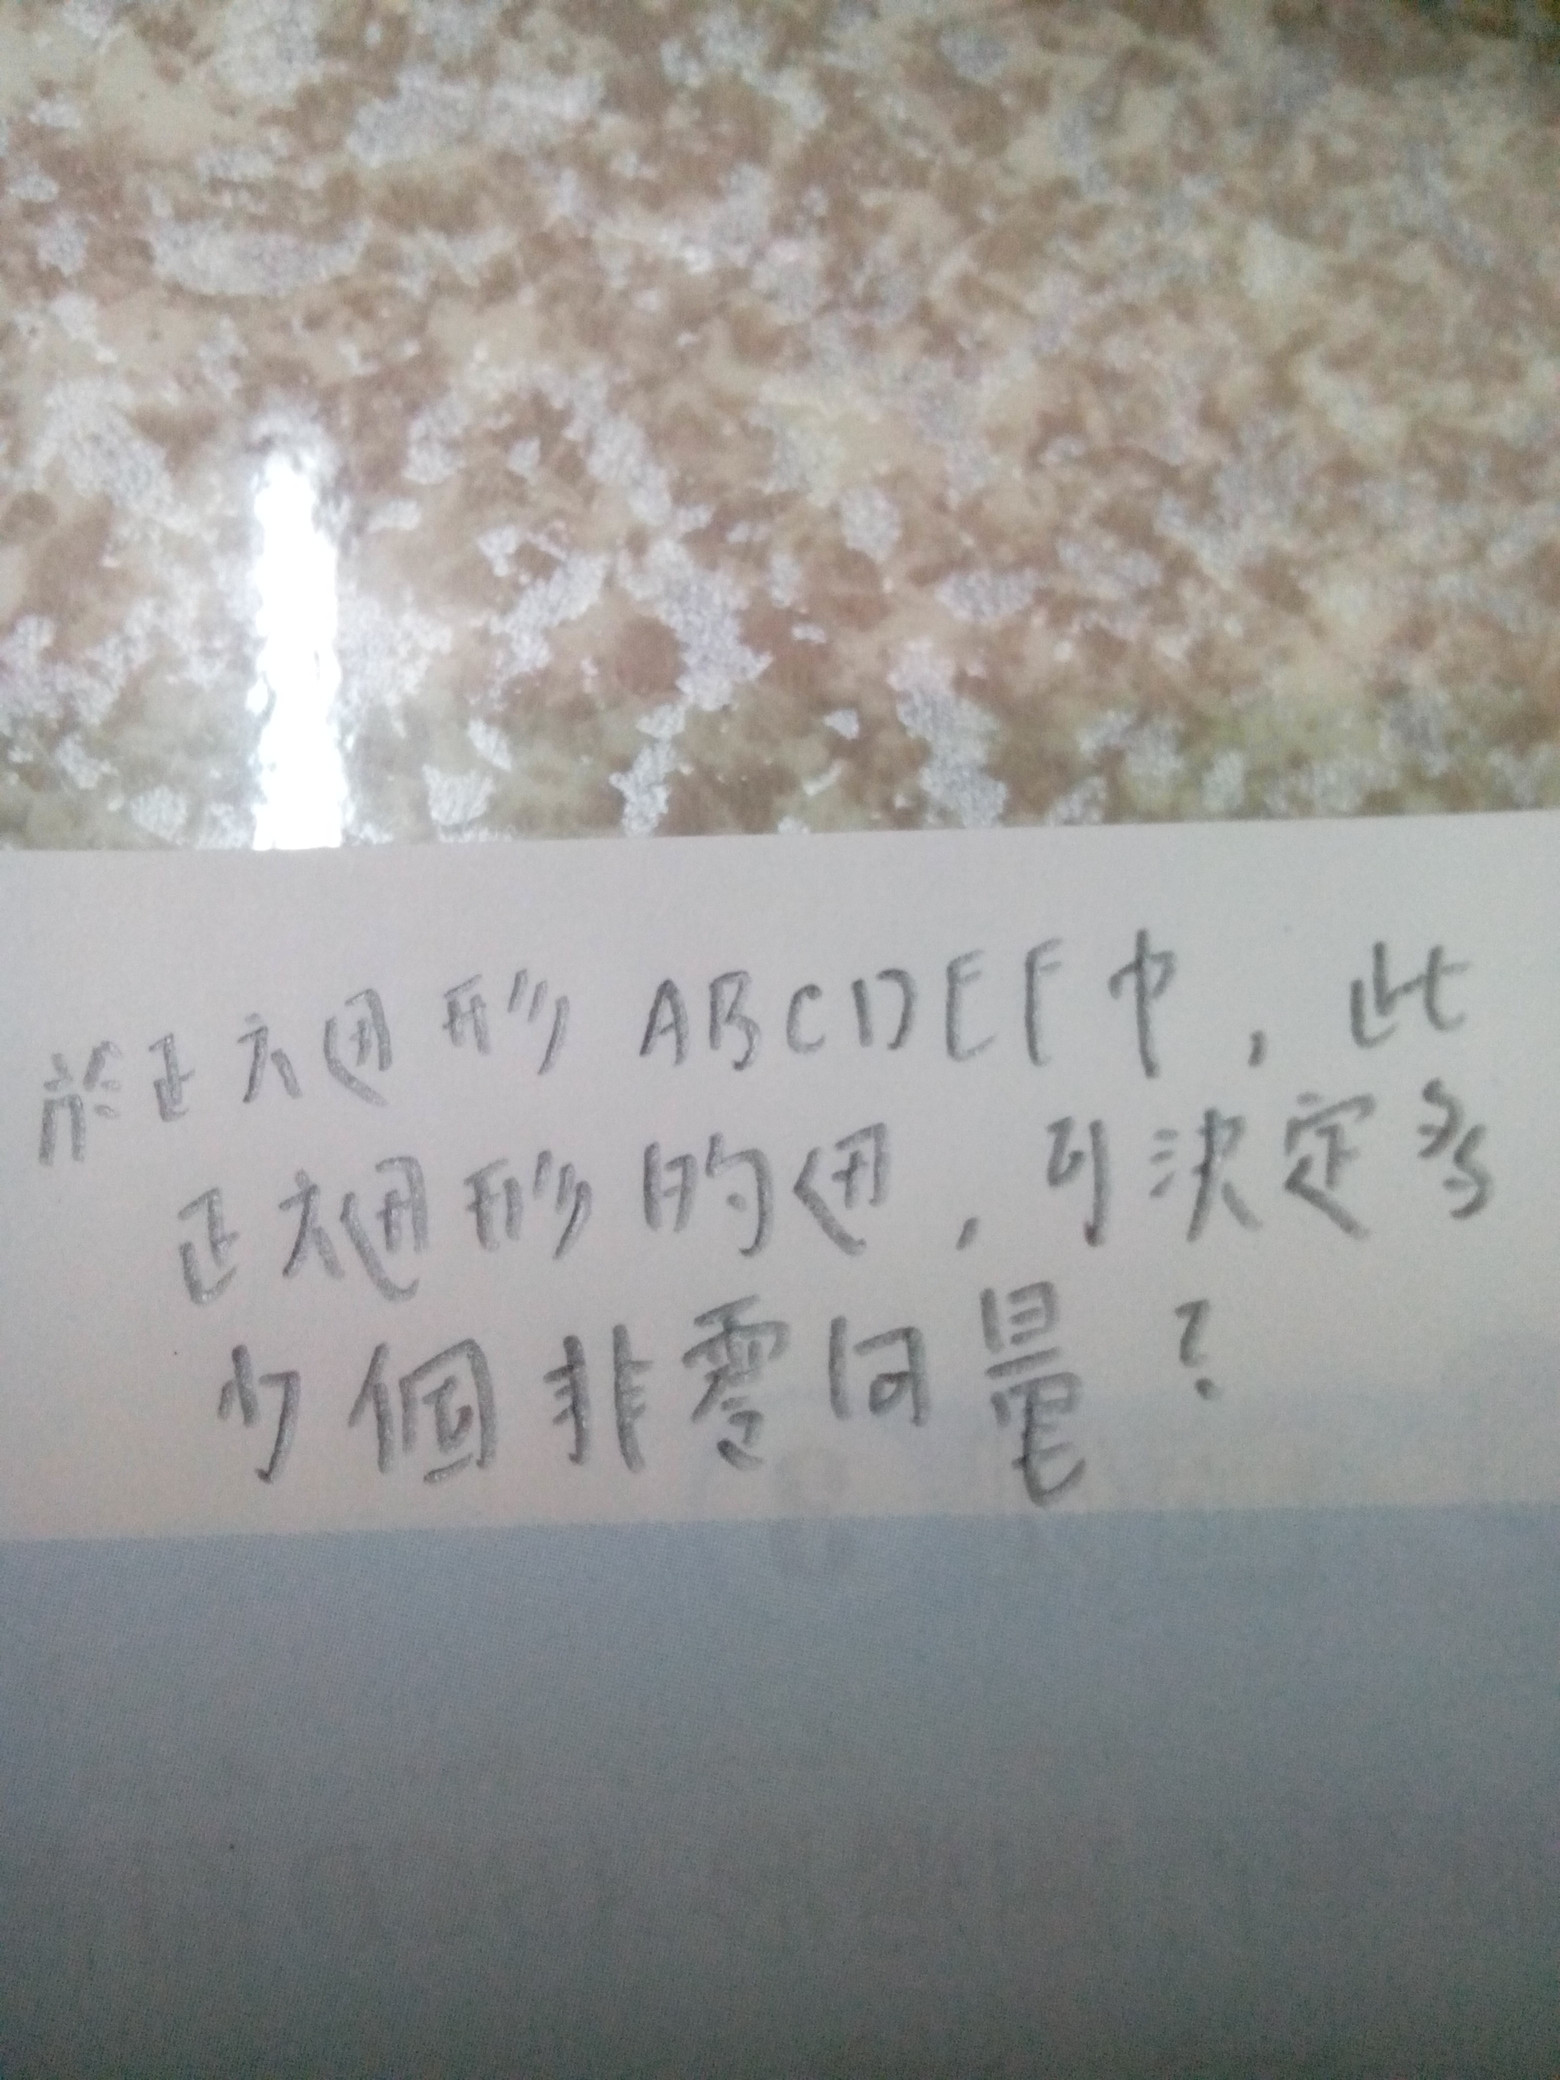 於正六边形 ABCDEF中，此
正六边形的边，可決定多
少個非零向量？